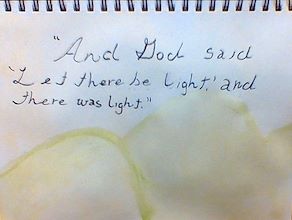 "And God said
'Let there be light,' and
there was light."